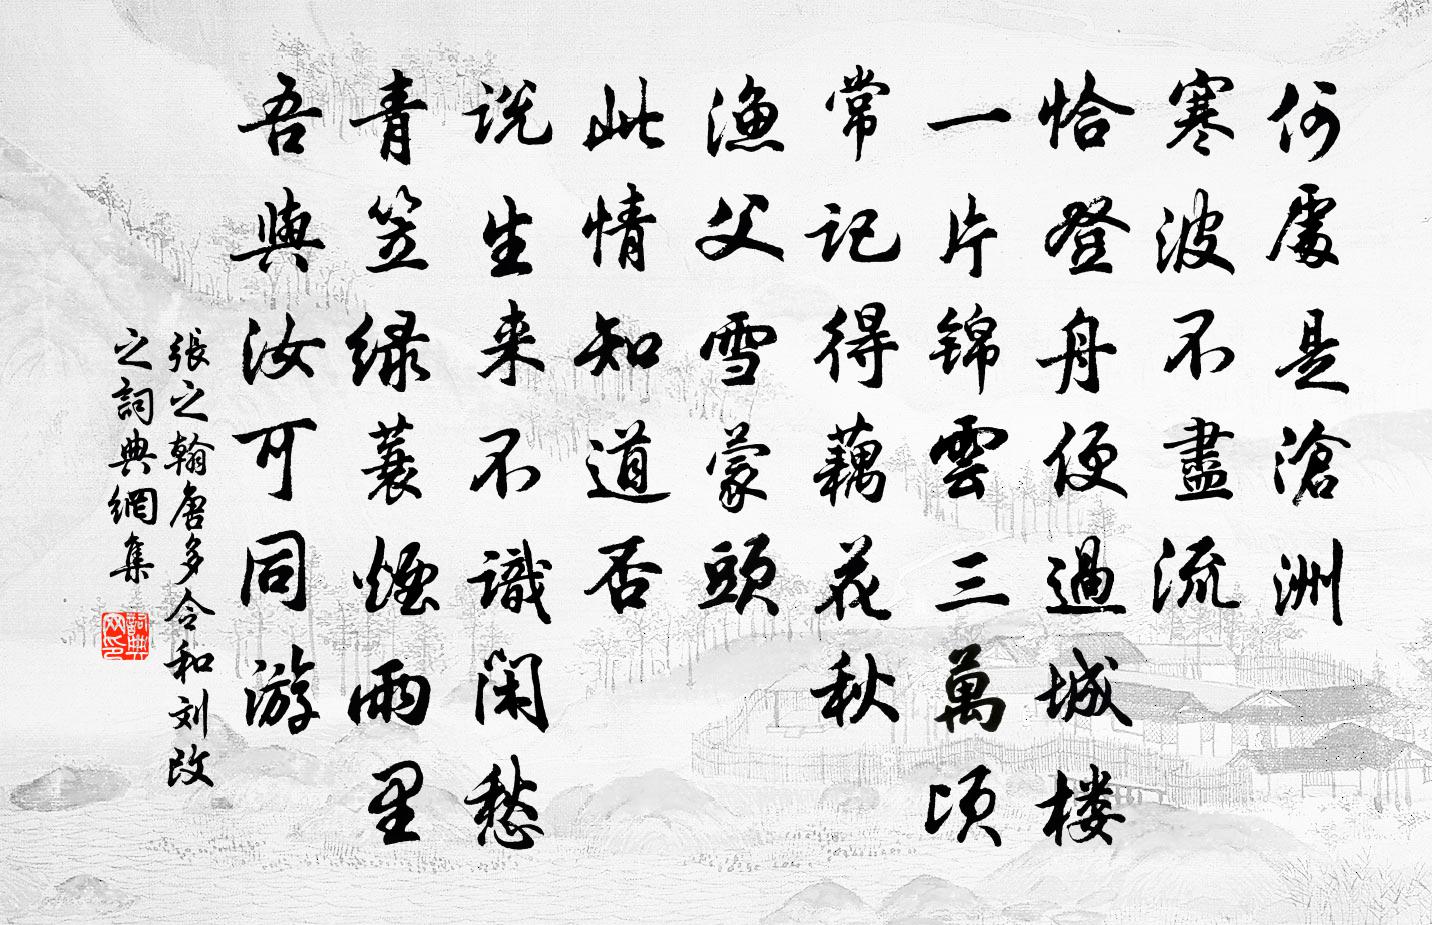 何處是滄洲
寒波不盡流
恰登舟便過城楼
一片锦雲三萬頃
常记得藕花秋
漁父雪蒙頭
此情知道否
说生来不識闲愁
青笠绿蓑烟雨里
吾與汝可同游
張之翰唐多令和刘改
之詞典網集
詞典网印